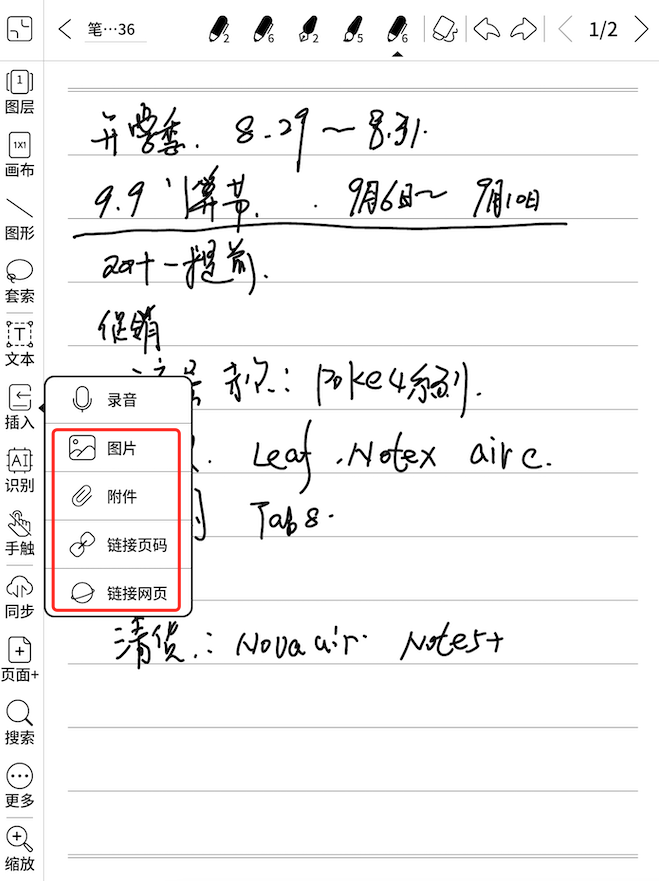 笔…36
2
6
2
5
6
1/2
1
图层
1X1
画布
图形
套索
T
文本
插入
AI
识别
手触
同步
页面+
搜索
更多
缩放
录音
图片
附件
链接页码
链接网页
开学季. 8.29～8.31.
9.9 节. 9月6日～ 9月10日
双十一提前.
促销
: poke4系列.
Leaf . Notex air c.
Tab 8.
清货.: Nova air. Note5+